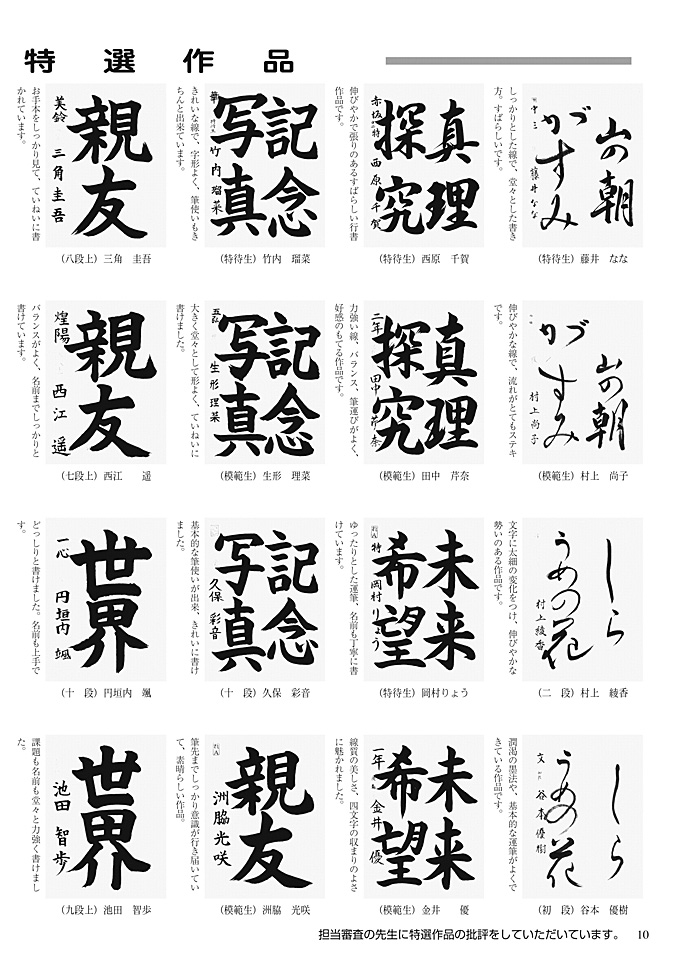 特選作品
山の朝
がすみ
藤井なな
しっかりとした線で、堂々とした書き
方。すばらしいです。
(特待生) 藤井　なな
真理
探究
西原千賀
伸びやかで張りのあるすばらしい行書
作品です。
(特待生) 西原　千賀
記念
写真
竹内瑠菜
きれいな線で、字形よく、筆使いもき
ちんと出来ています。
(特待生) 竹内　瑠菜
親友
美鈴　三角圭吾
お手本をしっかり見て、ていねいに書
かれています。
(八段上) 三角　圭吾
山の朝
がすみ
村上尚子
伸びやかな線で、流れがとてもステキ
です。
(模範生) 村上　尚子
真理
探究
二年　田中芹奈
力強い線、バランス、筆運びがよく、
好感のもてる作品です。
(模範生) 田中　芹奈
記念
写真
生形理菜
大きく堂々として形よく、ていねいに
書けました。
(模範生) 生形　理菜
親友
煌陽　西江遥
バランスがよく、名前までしっかりと
書けています。
(七段上) 西江　　遥
しら
うめの花
村上綾香
文字に太細の変化をつけ、伸びやかな
勢いのある作品です。
(二　段) 村上　綾香
未来
希望
特　岡村りょう
ゆったりとした運筆、名前も丁寧に書
けています。
(特待生) 岡村りょう
記念
写真
久保彩音
基本的な筆使いが出来、きれいに書け
ました。
(十　段) 久保　彩音
世界
一心　円垣内颯
どっしりと書けました。名前も上手で
す。
(十　段) 円垣内　颯
しら
うめの花
谷本優樹
潤渇の墨法や、基本的な運筆がよくで
きている作品です。
(初　段) 谷本　優樹
未来
希望
一年　金井優
線質の美しさ、四文字の収まりのよさ
に魅かれました。
(模範生) 金井　　優
親友
洲脇光咲
筆先までしっかり意識が行き届いてい
て、素晴らしい作品。
(模範生) 洲脇　光咲
世界
池田智歩
課題も名前も堂々と力強く書けまし
た。
(九段上) 池田　智歩
担当審査の先生に特選作品の批評をしていただいています。　10